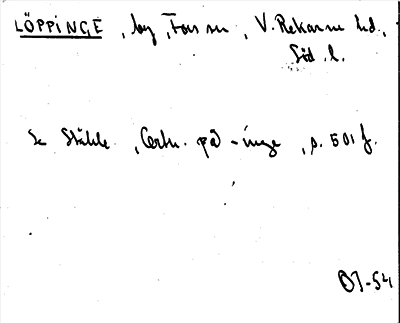 LÖPPINGE, by, Fors sn, V. Rekarne hd.,
Söd. l.
Se Ståhle, Ortn. på -inge, s. 501 f.
OJ-54